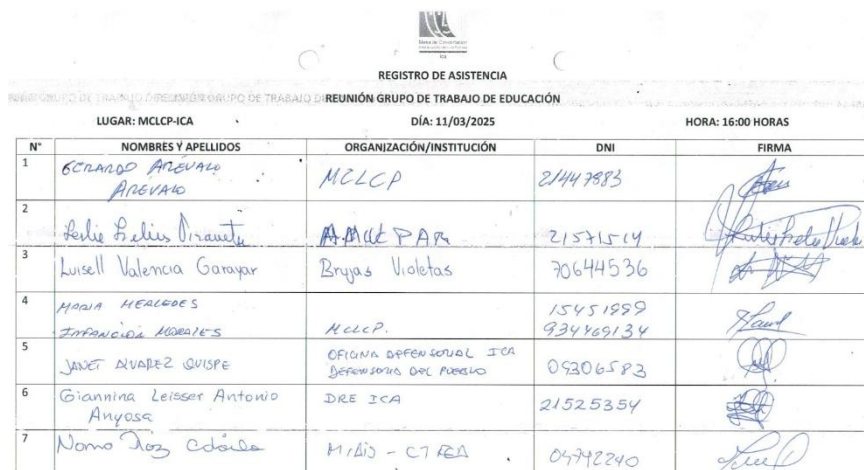 Mesa de Concertación
ICA
REGISTRO DE ASISTENCIA
REUNIÓN GRUPO DE TRABAJO DE EDUCACIÓN
LUGAR: MCLCP-ICA DÍA: 11/03/2025 HORA: 16:00 HORAS
N° NOMBRES Y APELLIDOS ORGANIZACIÓN/INSTITUCIÓN DNI FIRMA
1 GERARDO ARÉVALO
ARÉVALO MCLCP 21447983
2 Leslie 21571514
3 Luisell Valencia Garayar Brujas Violetas 70644536
4 MARIA MERCEDES 15451999
INFANCION MORALES MCLCP. 934469134
5 JANET ALVAREZ QUISPE OFICINA DEFENSORIAL ICA
DEFENSORIA DEL PUEBLO 09306583
6 Giannina Leisser Antonio
Anyosa DRE ICA 21525354
7 MIDIS - 04742240